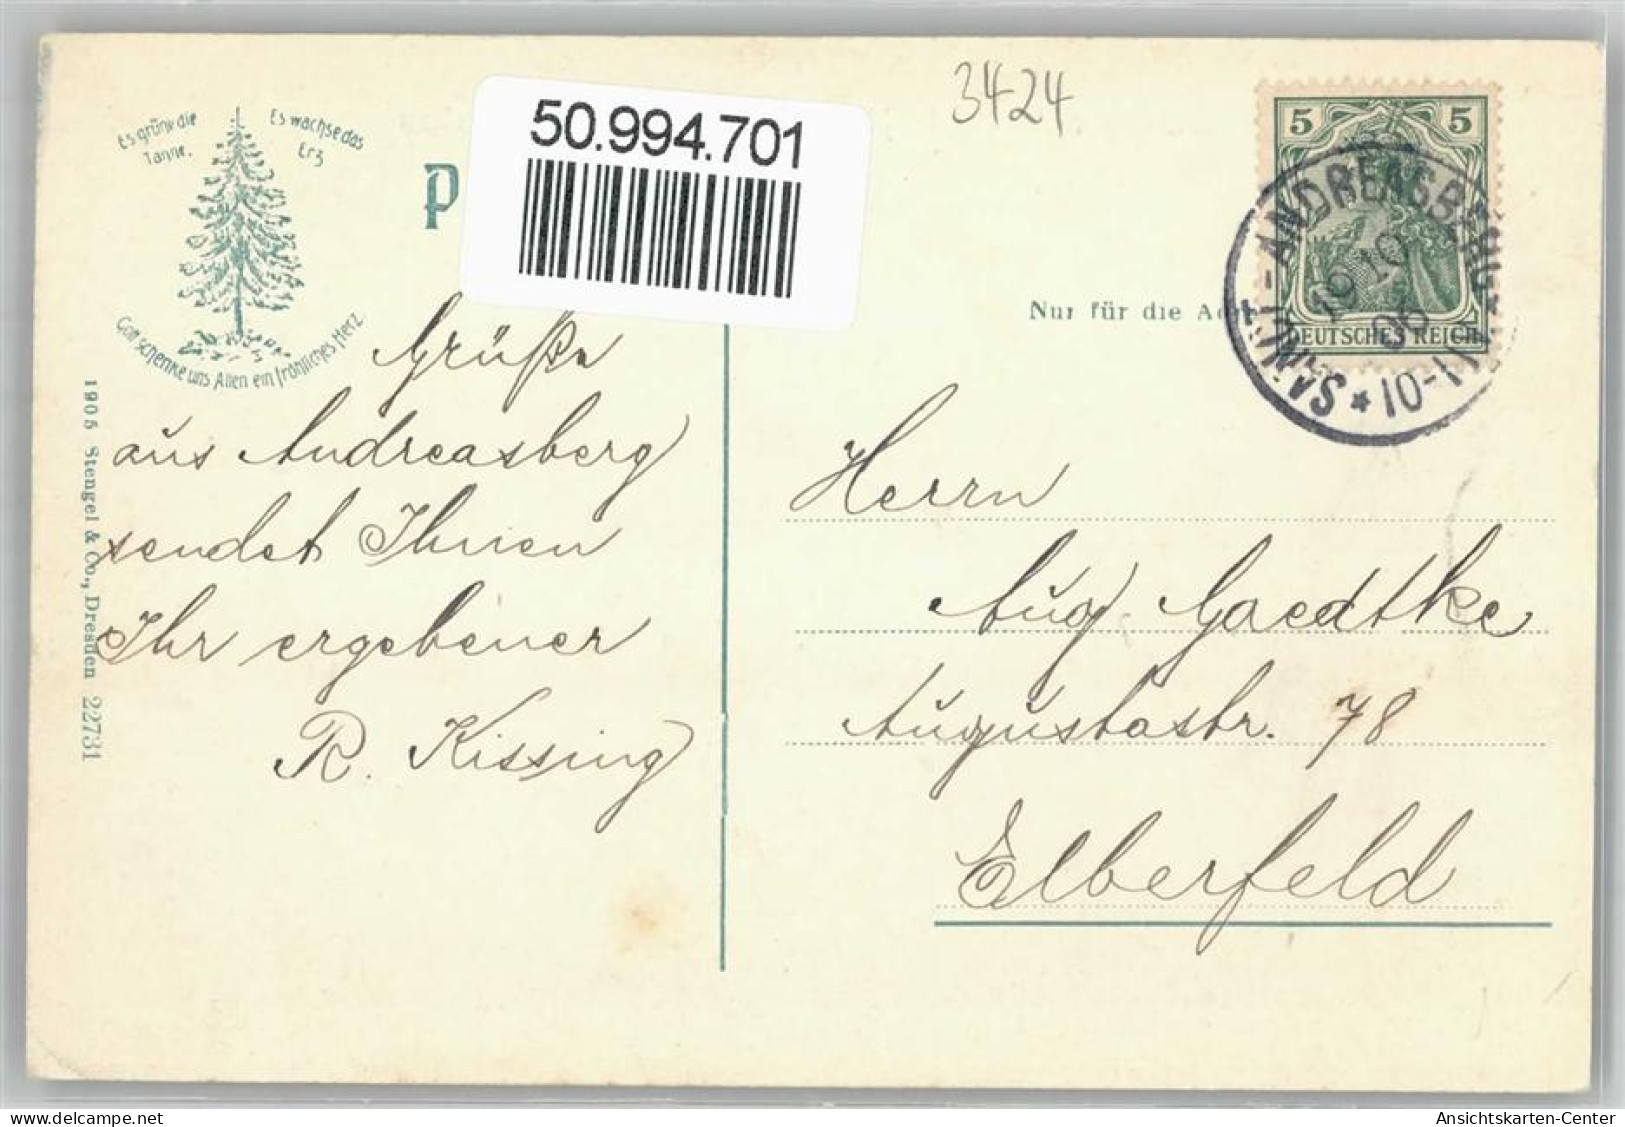 Es grüne die
Tanne.
Es wachse das
Erz
Gott schenke uns Allen ein fröhliches Herz
P
50.994.701
3424
5 5
DEUTSCHES REICH
SANKT-ANDREASBERG
10 10
06
* 10-11
Nur für die
Grüße
aus Andreasberg
sendet Ihnen
Ihr ergebener
R. Kissing
Herrn
Aug Gaedtke
Augustastr. 78
Elberfeld
1905 Stengel & Co., Dresden 22731
Ansichtskarten-Center